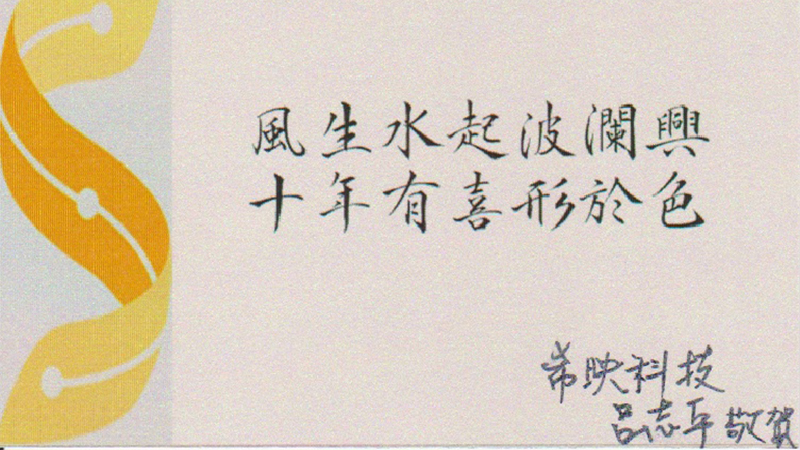 風生水起波瀾興
十年有喜形於色
希映科技
呂志平敬賀